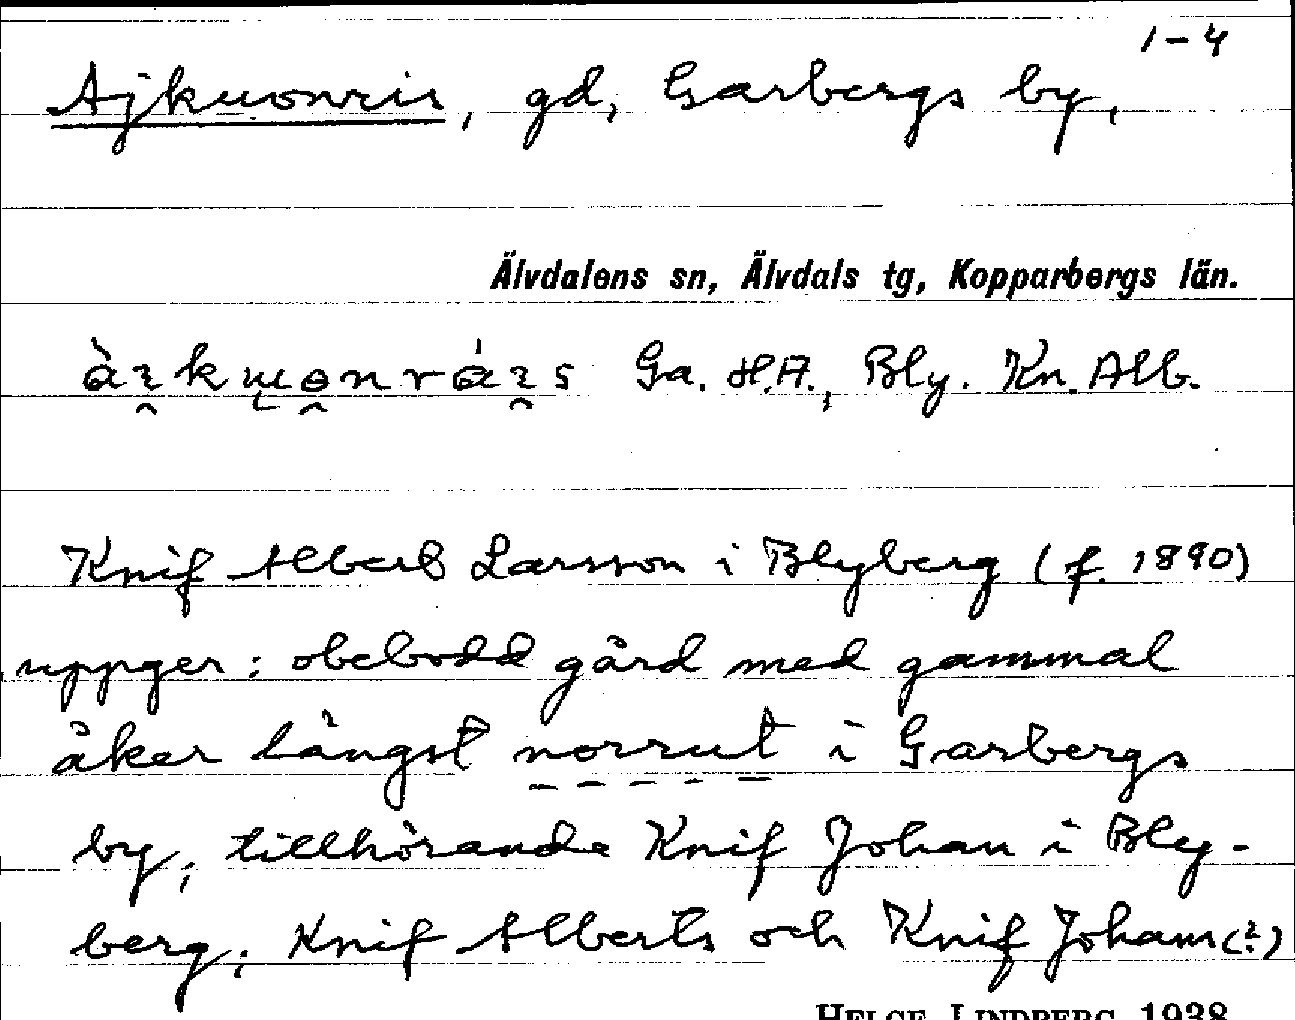 1-4
Ajkuonris, gd, Garbergs by,
Älvdalens sn, Älvdals tg, Kopparbergs län.
Ga. H.A., Bly. Kn. Alb.
Knif Albert Larsson i Blyberg (f. 1890)
uppger: obebodd gård med gammal
åker längst norrut i Garbergs
by, tillhörande Knif Johan i Bly-
berg; Knif Alberts och Knif Johans (?)
HELGE LINDBERG 1938